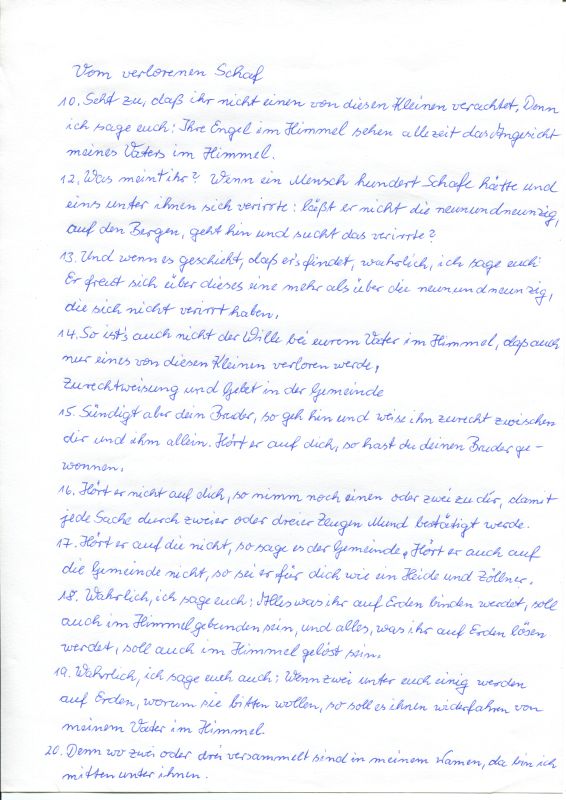 Vom verlorenen Schaf
10. Seht zu, daß ihr nicht einen von diesen Kleinen verachtet. Denn
ich sage euch: Ihre Engel im Himmel sehen allezeit das Angesicht
meines Vaters im Himmel.
12. Was meint ihr? Wenn ein Mensch hundert Schafe hätte und
eins unter ihnen sich verirrte: läßt er nicht die neunundneunzig,
auf den Bergen, geht hin und sucht das verirrte?
13. Und wenn es geschieht, daß er's findet, wahrlich, ich sage euch
Er freut sich über dieses eine mehr als über die neunundneunzig,
die sich nicht verirrt haben.
14. So ist's auch nicht der Wille bei eurem Vater im Himmel, daß auch
nur eines von diesen Kleinen verloren werde.
Zurechtweisung und Gebet in der Gemeinde
15. Sündigt aber dein Bruder, so geh hin und weise ihn zurecht zwischen
dir und ihm allein. Hört er auf dich, so hast du deinen Bruder ge-
wonnen.
16. Hört er nicht auf dich, so nimm noch einen oder zwei zu dir, damit
jede Sache durch zweier oder dreier Zeugen Mund bestätigt werde.
17. Hört er auf die nicht, so sage es der Gemeinde. Hört er auch auf
die Gemeinde nicht, so sei er für dich wie ein Heide und Zöllner.
18. Wahrlich, ich sage euch: Alles was ihr auf Erden binden werdet, soll
auch im Himmel gebunden sein, und alles, was ihr auf Erden lösen
werdet, soll auch im Himmel gelöst sein.
19. Wahrlich, ich sage euch auch: Wenn zwei unter euch einig werden
auf Erden, worum sie bitten wollen, so soll es ihnen widerfahren von
meinem Vater im Himmel.
20. Denn wo zwei oder drei versammelt sind in meinem Namen, da bin ich
mitten unter ihnen.